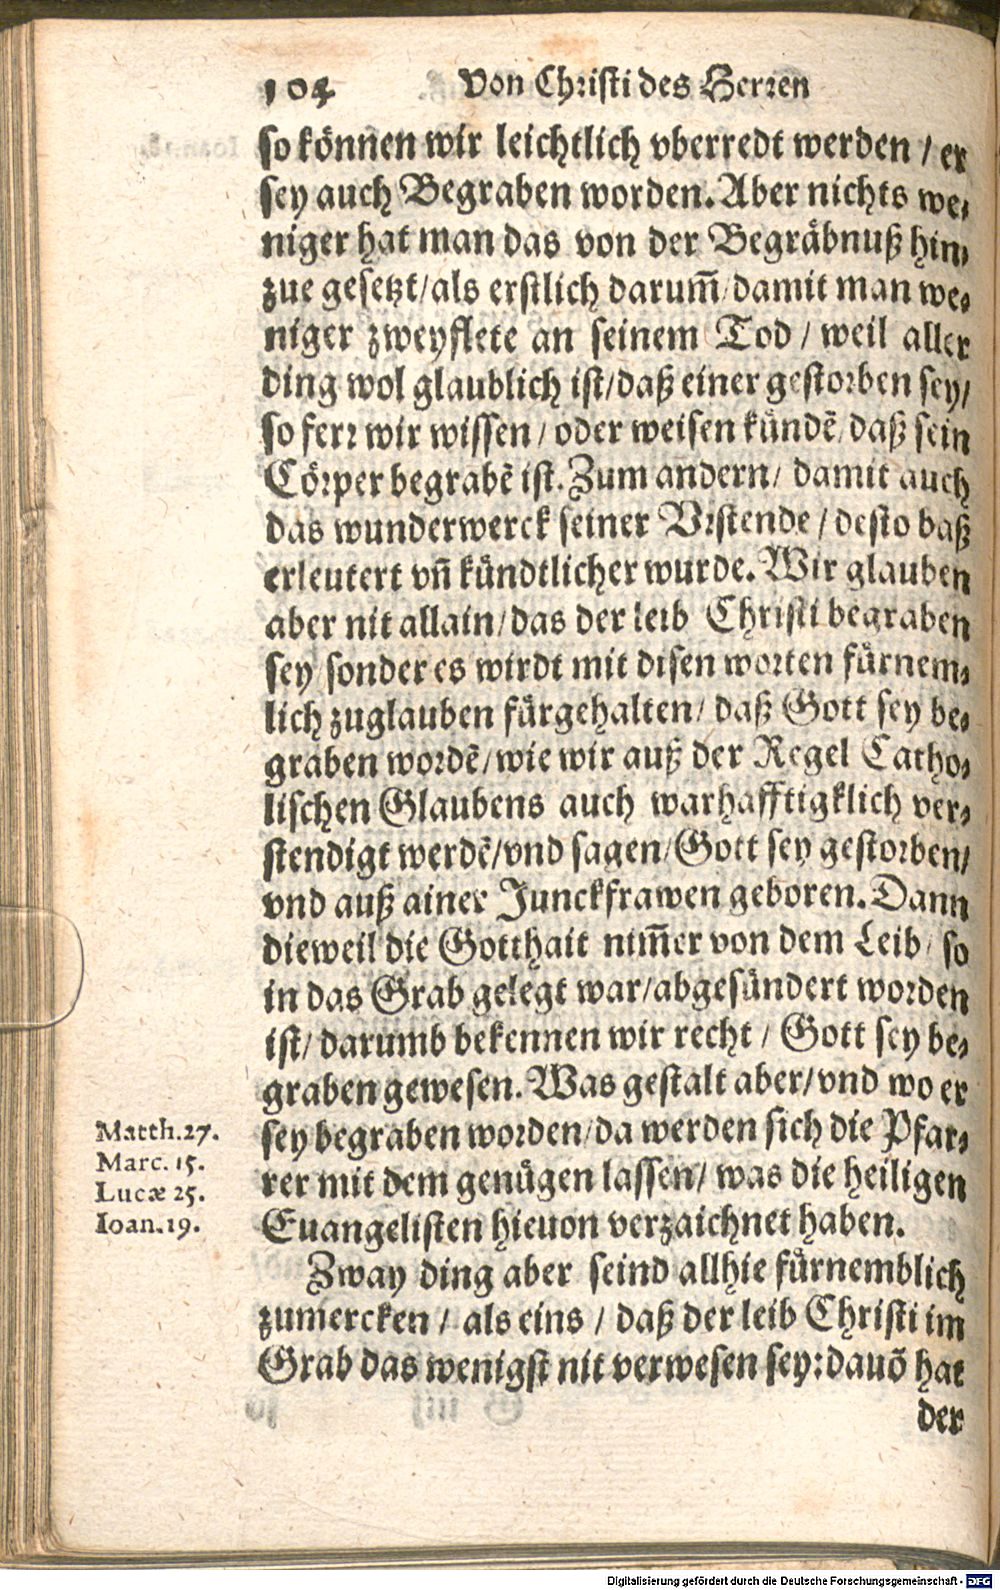 104 Von Christi des Herren
so können wir leichtlich vberredt werden / er
sey auch Begraben worden. Aber nichts we⸗
niger hat man das von der Begräbnuß hin⸗
zue gesetzt/als erstlich darum̄/damit man we⸗
niger zweyflete an seinem Tod / weil aller
ding wol glaublich ist/daß einer gestorben sey/
so ferr wir wissen / oder weisen kündē/daß sein
Cörper begrabē ist. Zum andern/ damit auch
das wunderwerck seiner Vrstende / desto baß
erleutert vn̄ kündtlicher wurde. Wir glauben
aber nit allain/das der leib Christi begraben
sey/sonder es wirdt mit disen worten fürnem⸗
lich zuglauben fürgehalten/ daß Gott sey be⸗
graben wordē/wie wir auß der Regel Catho⸗
lischen Glaubens auch warhafftigklich ver⸗
stendigt werdē/vnd sagen/Gott sey gestorben/
vnd auß ainer Junckfrawen geboren. Dann
dieweil die Gotthait nim̄er von dem Leib/ so
in das Grab gelegt war/abgesündert worden
ist/ darumb bekennen wir recht / Gott sey be⸗
graben gewesen. Was gestalt aber/vnd wo er
sey begraben worden/da werden sich die Pfar⸗
rer mit dem genügen lassen/ was die heiligen
Euangelisten hieuon verzaichnet haben.
Matth.27.
Marc. 15.
Lucæ 25.
Ioan.19.
Zway ding aber seind allhie fürnemblich
zumercken / als eins / daß der leib Christi im
Grab das wenigst nit verwesen sey: dauō hat
der
Digitalisierung gefördert durch die Deutsche Forschungsgemeinschaft - DFG